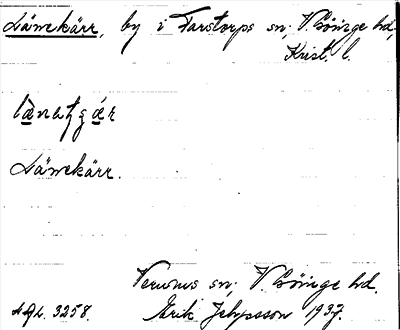 Länekärr, by i Farstorps sn, V. Göinge hd,
Krist. l.
Länekärr.
Verums sn, V. Göinge hd.
Acc. 3258. Erik Jeppsson 1937.